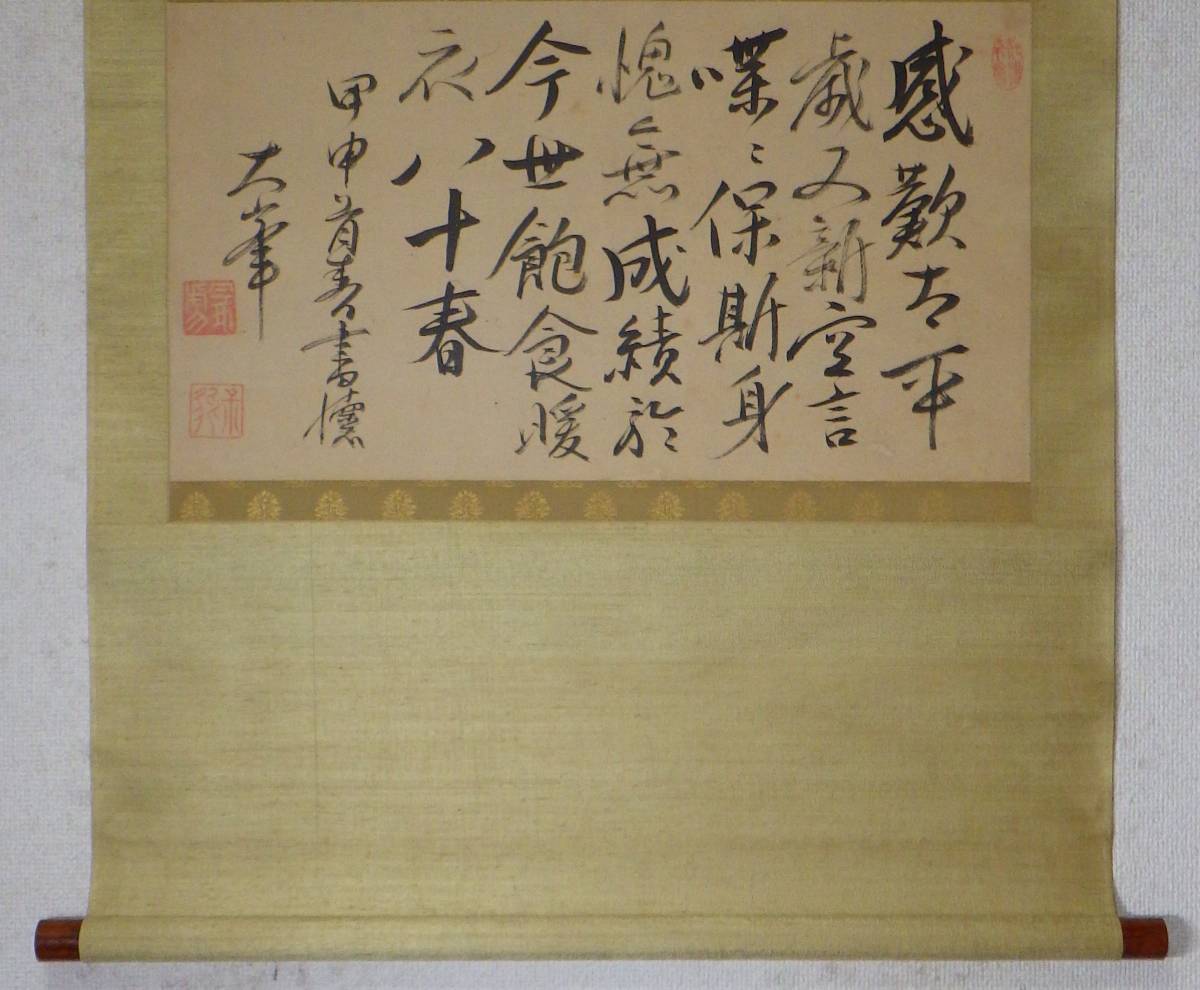 感歎太平
歳又新空言
喋〻保斯身
愧無成績於
今世飽食暖
衣八十春
甲申首春書懐
大峯